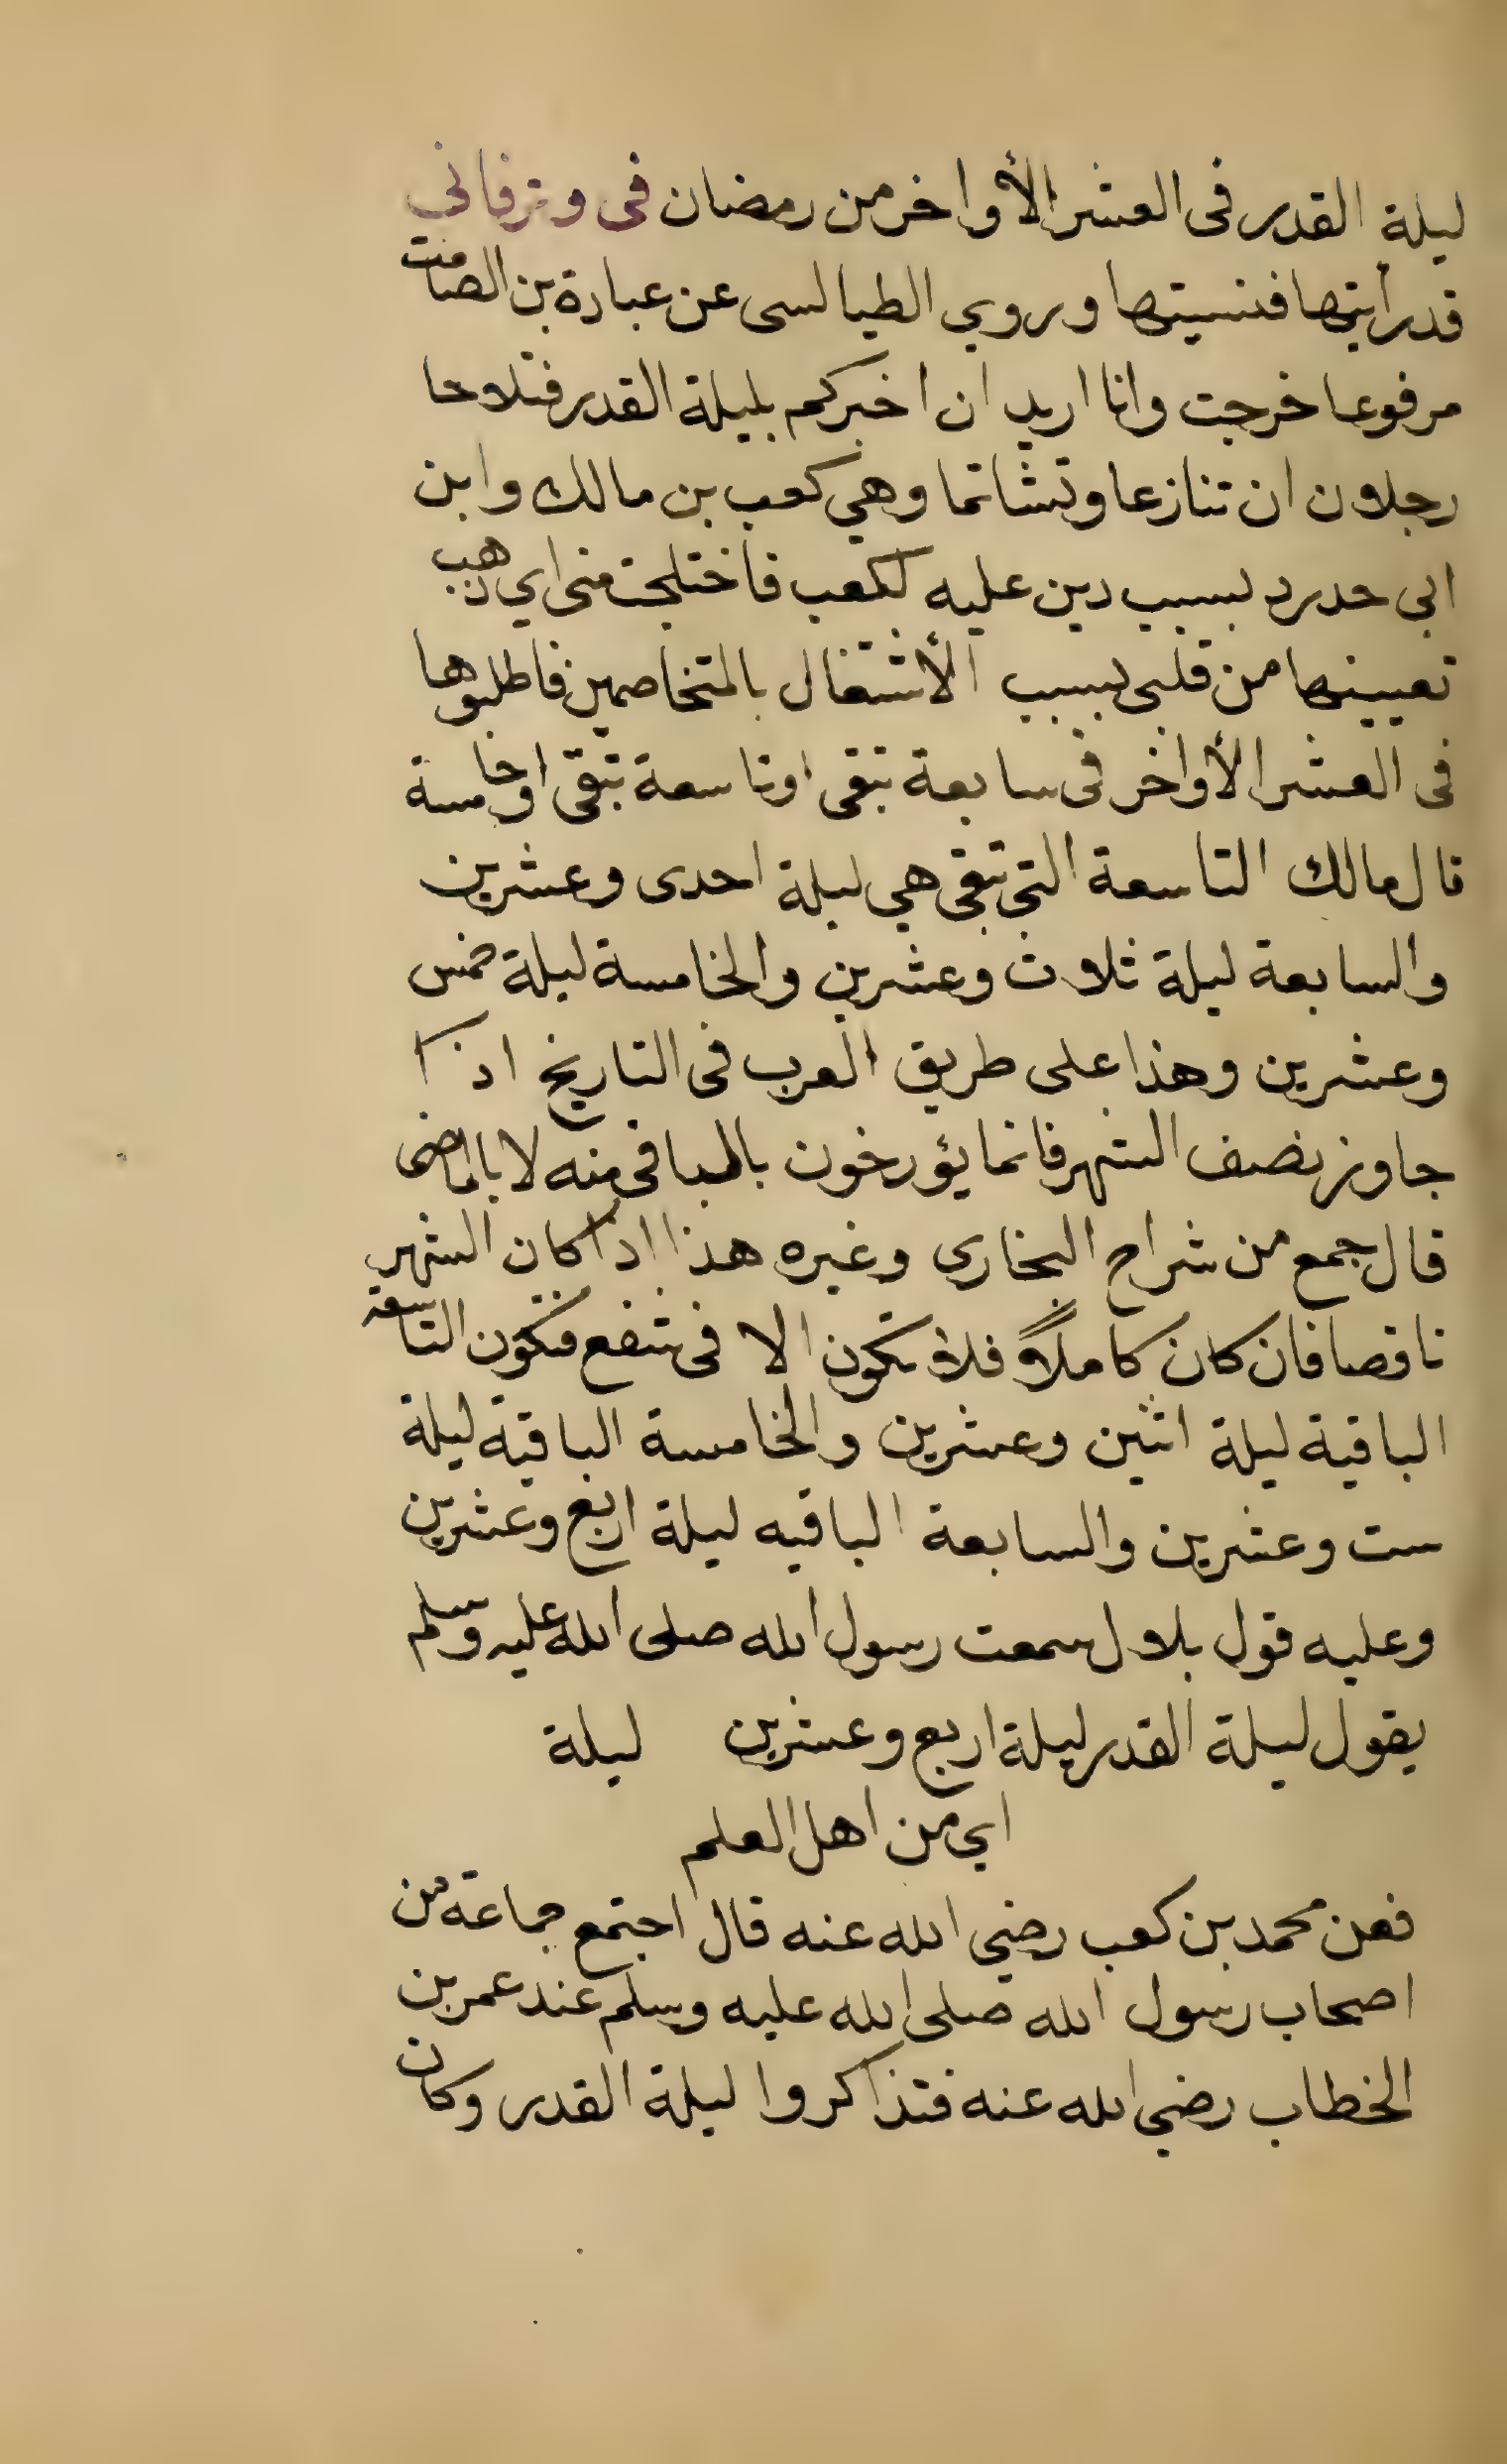 ليلة القدر فى العشر الأواخر من رمضان فى وتر فاني
قد رأيتها فنسيتها وروي الطيالسى عن عبادة بن الصامت
مرفوعا خرجت وانا اريد ان اخبركم بليلة القدر فتلاحا
رجلان ان تنازعا وتشاتما وهي كعب بن مالك وابن
ابى حدرد بسبب دين عليه لكعب فاختلجت منى اي ذهب
تعيينها من قلبى بسبب الأشتغال بالمتخاصمين فاطلبوها
فى العشر الأواخر فى سابعة تبقى اوتاسعة تبقى اوخامسة
قال مالك التاسعة التى تبقى هي ليلة احدى وعشرين
والسابعة ليلة ثلاث وعشرين والخامسة ليلة خمس
وعشرين وهذا على طريق العرب فى التاريخ اذا
جاوز نصف الشهر فانما يؤرخون بالباقى منه لا بالماضى
قال جمع من شراح البخارى وغيره هذا اذا كان الشهر
ناقصا فان كان كاملاً فلا تكون الا فى شفع فتكون التاسعة
الباقية ليلة اثنين وعشرين والخامسة الباقية ليلة
ست وعشرين والسابعة الباقيه ليلة اربع وعشرين
وعليه قول بلال سمعت رسول الله صلى الله عليه وسلم
يقول ليلة القدر ليلة اربع وعشرين ليلة
اي من اهل العلم
فعن محمد بن كعب رضي الله عنه قال اجتمع جماعة من
اصحاب رسول الله صلى الله عليه وسلم عند عمر بن
الخطاب رضي الله عنه فتذاكروا ليلة القدر وكان